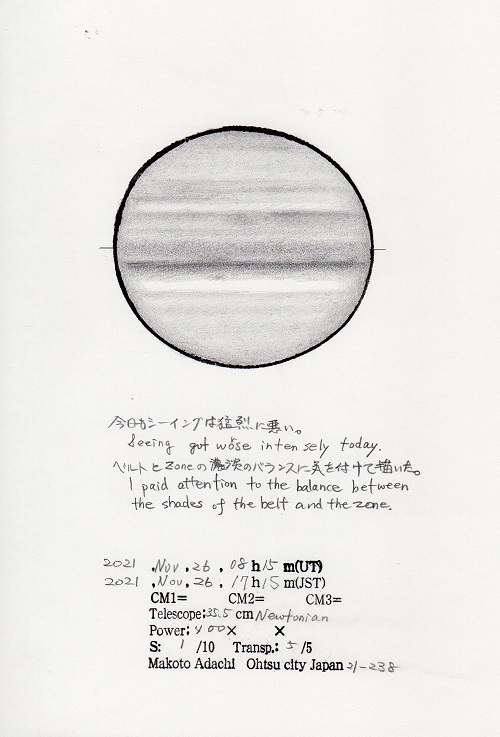 今日もシーイングは猛烈に悪い。
Seeing got wose inten sely today.
ベルトとZoneの濃淡のバランスに気を付けて描いた。
I paid attention to the balance between
the shades of the belt and the zone.
2021 ,Nov, 26, 08 h 15 m(UT)
2021 ,Nov, 26, 17 h 15 m(JST)
CM1= CM2= CM3=
Telescope; 35.5 cm Newtonian
Power; 400× ×
S: 1 /10 Transp.: 5 /5
Makoto Adachi Ohtsu city Japan 21-238